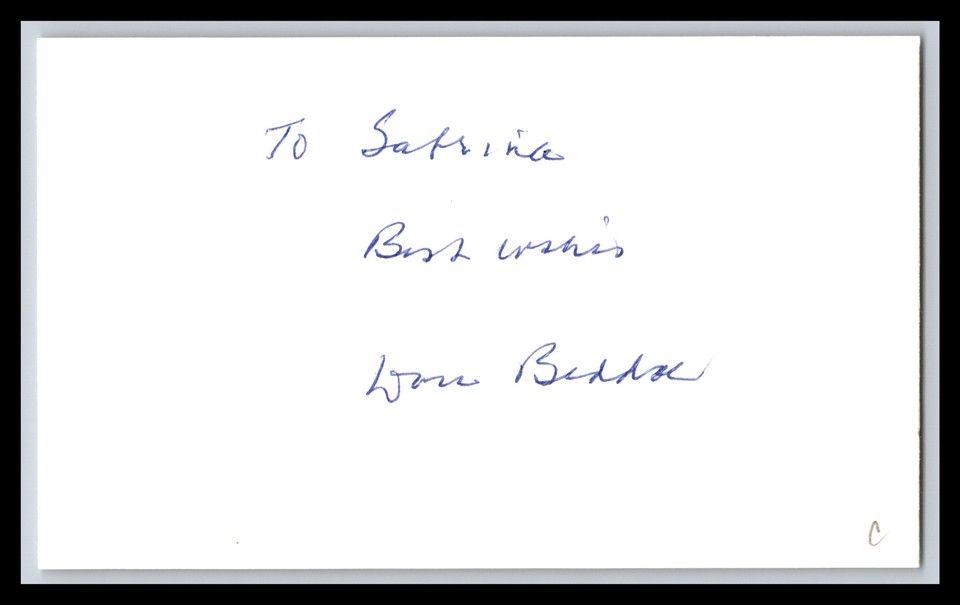 To Sabrina
Best wishes
Don Beddoe
C